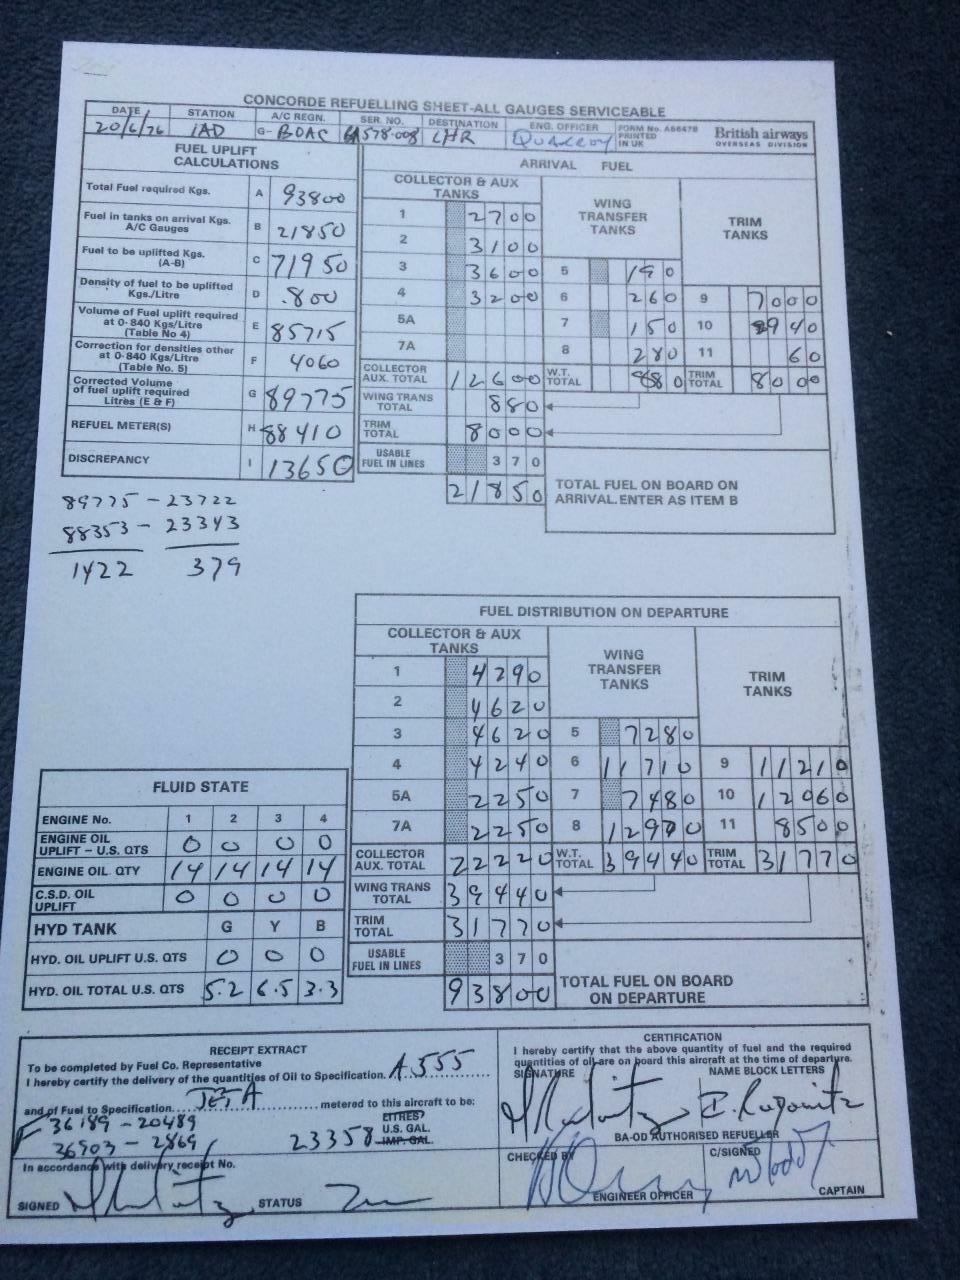 CONCORDE REFUELLING SHEET-ALL GAUGES SERVICEABLE
DATE STATION A/C REGN. SER. NO. DESTINATION ENG. OFFICER FORM No. A6647B PRINTED IN UK British airways OVERSEAS DIVISION
20/6/76 IAD G-BOAC 578.008 LHR
FUEL UPLIFT CALCULATIONS
Total Fuel required Kgs. A 93800
Fuel in tanks on arrival Kgs. A/C Gauges B 21850
Fuel to be uplifted Kgs. (A-B) C 71950
Density of fuel to be uplifted Kgs./Litre D .800
Volume of Fuel uplift required at 0·840 Kgs/Litre (Table No 4) E 85715
Correction for densities other at 0·840 Kgs/Litre (Table No. 5) F 4060
Corrected Volume of fuel uplift required Litres (E & F) G 89775
REFUEL METER(S) H 88410
DISCREPANCY I 13650
ARRIVAL FUEL
COLLECTOR & AUX TANKS
1 2700
2 3100
3 3600
4 3200
5A
7A
COLLECTOR AUX. TOTAL 12600
WING TRANS TOTAL 880
TRIM TOTAL 8000
USABLE FUEL IN LINES 370
21850
WING TRANSFER TANKS
5 190
6 260
7 150
8 280
W.T. TOTAL 880
TRIM TANKS
9 7000
10 940
11 60
TRIM TOTAL 8000
TOTAL FUEL ON BOARD ON ARRIVAL. ENTER AS ITEM B
89775 - 23722
88353 - 23343
1422 379
FUEL DISTRIBUTION ON DEPARTURE
COLLECTOR & AUX TANKS
1 4290
2 4620
3 4620
4 4240
5A 2250
7A 2250
COLLECTOR AUX. TOTAL 22220
WING TRANS TOTAL 39440
TRIM TOTAL 31770
USABLE FUEL IN LINES 370
93800
WING TRANSFER TANKS
5 7280
6 11710
7 7480
8 12970
W.T. TOTAL 39440
TRIM TANKS
9 11210
10 12060
11 8500
TRIM TOTAL 31770
TOTAL FUEL ON BOARD ON DEPARTURE
FLUID STATE
ENGINE No. 1 2 3 4
ENGINE OIL UPLIFT – U.S. QTS 0 0 0 0
ENGINE OIL. QTY 14 14 14 14
C.S.D. OIL UPLIFT 0 0 0 0
HYD TANK G Y B
HYD. OIL UPLIFT U.S. QTS 0 0 0
HYD. OIL TOTAL U.S. QTS 5.2 6.5 3.3
RECEIPT EXTRACT
To be completed by Fuel Co. Representative
I hereby certify the delivery of the quantities of Oil to Specification. A555
and of Fuel to Specification JET A metered to this aircraft to be:
36189 - 20489
36903 - 2869
23358
LITRES
U.S. GAL.
IMP. GAL.
In accordance with delivery receipt No.
SIGNED
STATUS
CERTIFICATION
I hereby certify that the above quantity of fuel and the required
quantities of oil are on board this aircraft at the time of departure.
SIGNATURE NAME BLOCK LETTERS
BA-OD AUTHORISED REFUELLER
CHECKED BY
C/SIGNED
ENGINEER OFFICER
CAPTAIN